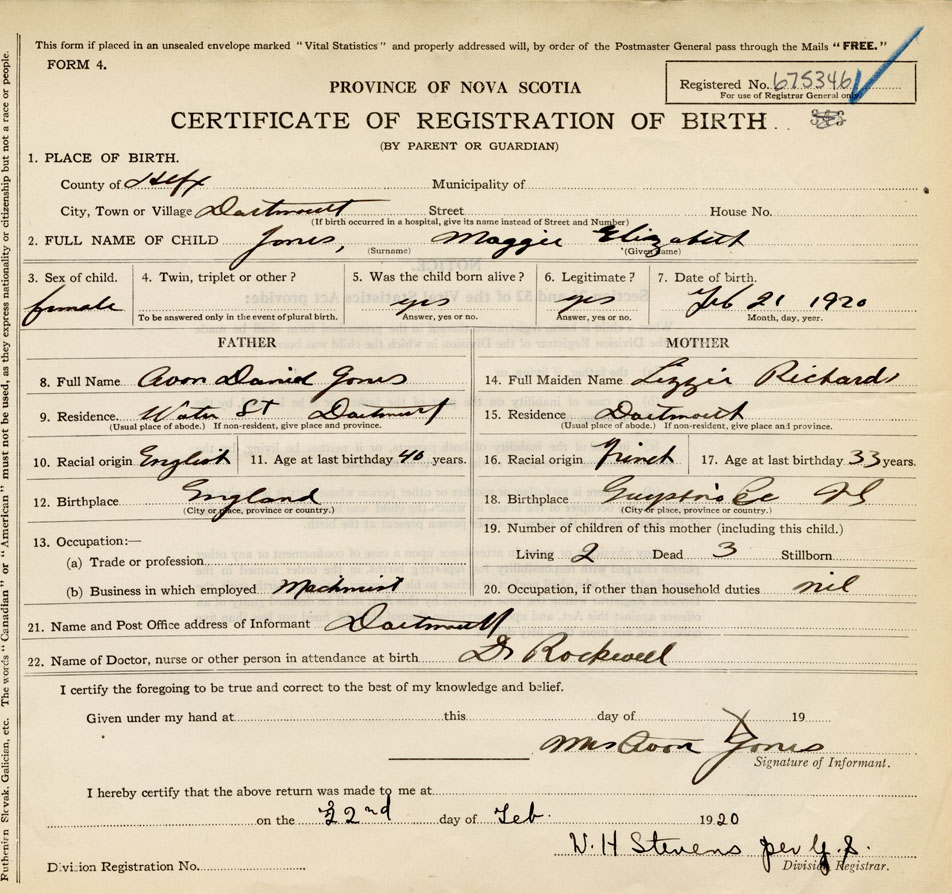 This form if placed in an unsealed envelope marked "Vital Statistics" and properly addressed will, by order of the Postmaster General pass through the Mails "FREE."
FORM 4.
Registered No. 675346
For use of Registrar General only.
PROVINCE OF NOVA SCOTIA
CERTIFICATE OF REGISTRATION OF BIRTH
(BY PARENT OR GUARDIAN)
1. PLACE OF BIRTH.
County of Hlfx Municipality of
City, Town or Village Dartmouth Street House No.
(If birth occurred in a hospital, give its name instead of Street and Number)
2. FULL NAME OF CHILD Jones, Maggie Elizabeth
(Surname) (Given name)
3. Sex of child. 4. Twin, triplet or other? 5. Was the child born alive? 6. Legitimate? 7. Date of birth.
female yes yes Feb 21 1920
To be answered only in the event of plural birth. Answer, yes or no. Answer, yes or no. Month, day, year.
FATHER MOTHER
8. Full Name Avon Daniel Jones 14. Full Maiden Name Lizzie Richards
9. Residence. Water St Dartmouth 15. Residence Dartmouth
(Usual place of abode.) If non-resident, give place and province. (Usual place of abode.) If non-resident, give place and province.
10. Racial origin English 11. Age at last birthday 40 years. 16. Racial origin French 17. Age at last birthday 33 years.
12. Birthplace England 18. Birthplace NS
(City or place, province or country.) (City or place, province or country.)
13. Occupation:— 19. Number of children of this mother (including this child.)
(a) Trade or profession Living 2 Dead 3 Stillborn
(b) Business in which employed Machinist 20. Occupation, if other than household duties nil
21. Name and Post Office address of Informant Dartmouth
22. Name of Doctor, nurse or other person in attendance at birth Dr Rockwell
I certify the foregoing to be true and correct to the best of my knowledge and belief.
Given under my hand at this day of 19
Mrs Avon Jones
Signature of Informant.
I hereby certify that the above return was made to me at
on the 22nd day of Feb. 1920
W. H Stevens per G. S.
Division Registrar.
Division Registration No.
Ruthenian Slovak, Galician, etc. The words "Canadian" or "American" must not be used, as they express nationality or citizenship but not a race or people.